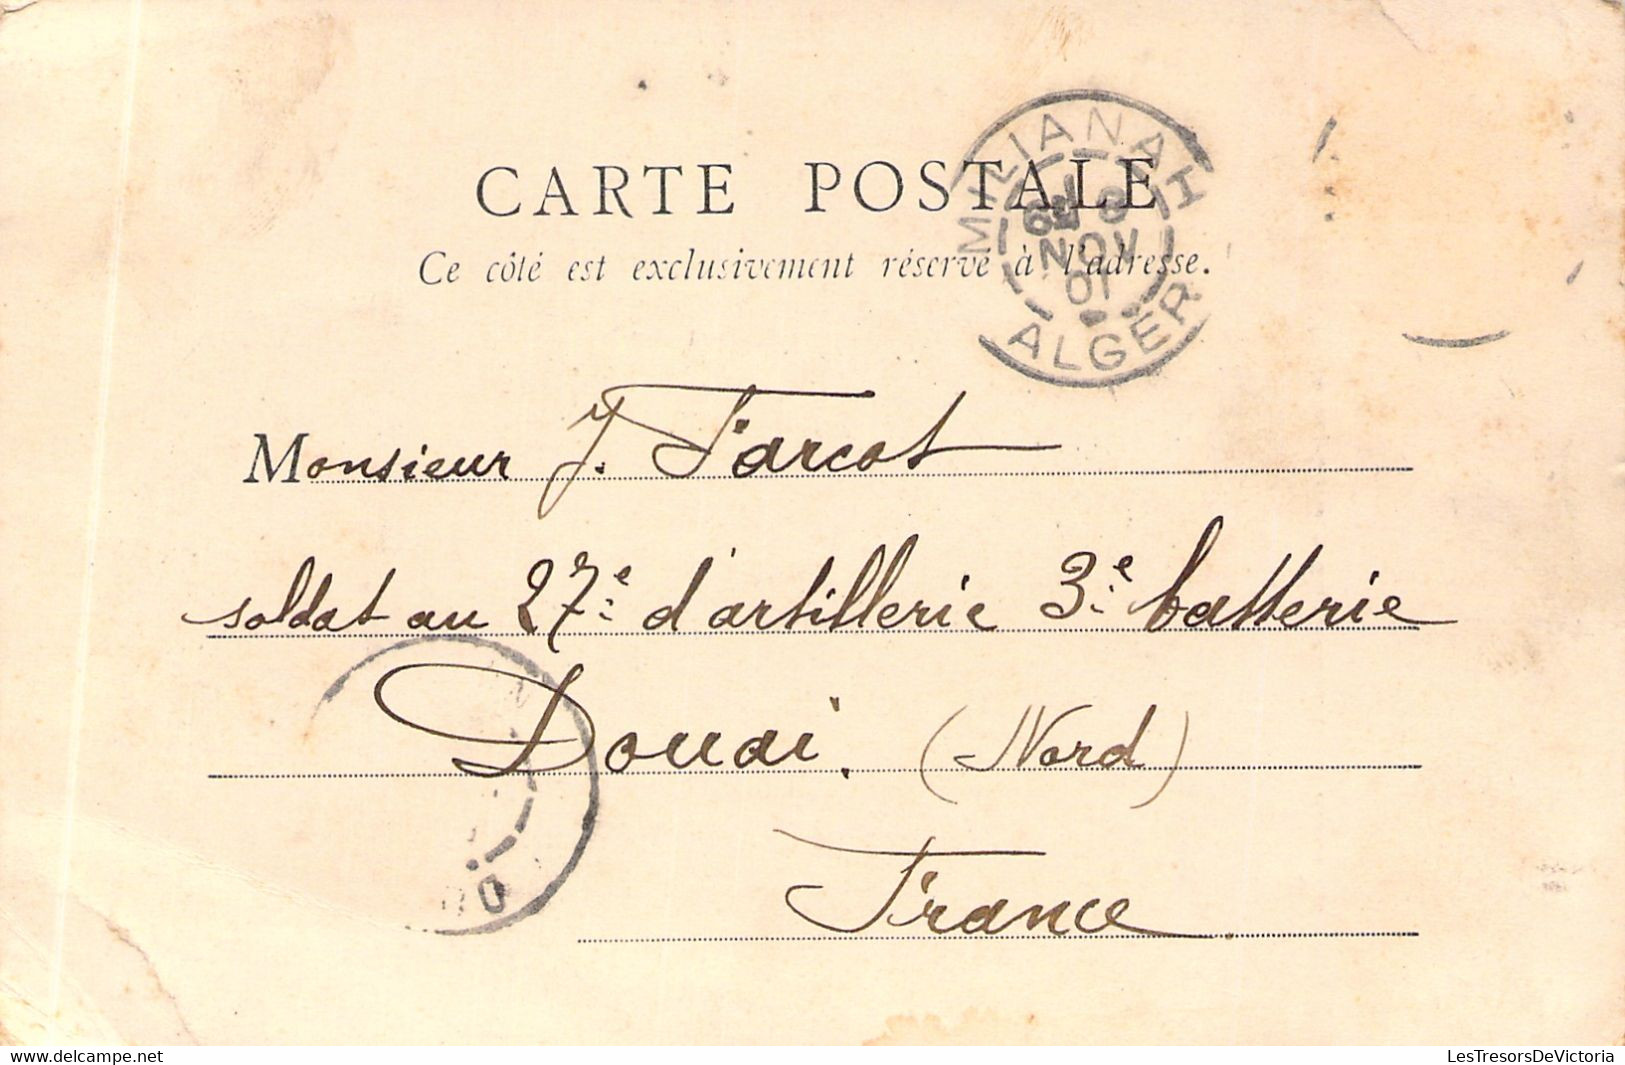 CARTE POSTALE
Ce côté est exclusivement réservé à l'adresse.
MILIANAH
NOV
01
ALGER
Monsieur J. Farcot
soldat au 27e d'artillerie 3e batterie
Douai. (Nord)
France
delcampe.net
LesTresorsDeVictoria